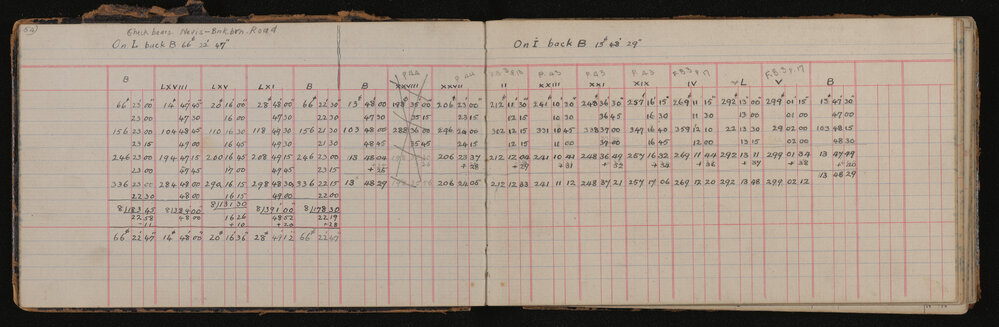 54
Check bears. Nevis-Bnkbrn Road
On L back B 66° 22' 47"
On I back B 13° 48' 29"
P.44 P.44 F.B.3 P.13 P.43 P.43 P.43 F.B.3 P.17 F.B.3 P.17
B LXVIII LXV LXI B B XXVIII XXVII II XXIII XXI XIX IV L V B
66° 23' 00" 14° 47' 45" 20° 16' 00" 28° 48' 00" 66° 22' 30" 13° 48' 00" 198° 35' 00" 206° 23' 00" 212 11 30 241 10 30 248 36 30 257 16 15 269 11 15 292 13 00 299 01 15 13 47 30
23 00 47 30 16 00 47 30 22 30 47 30 35 15 23 15 12 15 10 30 36 45 16 30 11 30 13 00 01 00 47 00
156 23 00 104 48 45 110 16 30 118 49 30 156 21 30 103 48 00 288 36 00 296 24 00 302 12 15 331 10 45 338 37 00 347 16 40 359 12 10 22 13 30 29 02 00 103 48 15
23 15 49 00 16 45 49 30 21 30 48 45 35 45 24 15 12 15 11 00 37 00 16 45 12 00 13 15 02 00 48 30
246 23 00 194 47 15 200 16 45 208 49 15 246 23 00 13 48 04 206 23 37 212 12 04 241 10 41 248 36 49 257 16 32 269 11 44 292 13 11 299 01 34 13 47 49
23 00 47 45 17 00 49 45 23 15 + 25 + 28 + 29 + 31 + 32 + 34 + 36 + 37 + 38 + 40
336 23 00 284 48 00 290 16 15 298 48 30 336 22 15 13° 48 29 206 24 05 212 12 33 241 11 12 248 37 21 257 17 06 269 12 20 292 13 48 299 02 12 13 48 29
22 30 48 00 16 15 49 00 22 00
8/183 45 8/384 00 8/131 30 8/391 00 8/178 30
22 58 48 00 16 26 48 52 22 19
- 11 + 10 + 20 + 28
66° 22' 47" 14° 48' 00" 20° 16' 36" 28° 49' 12 66° 22' 47"